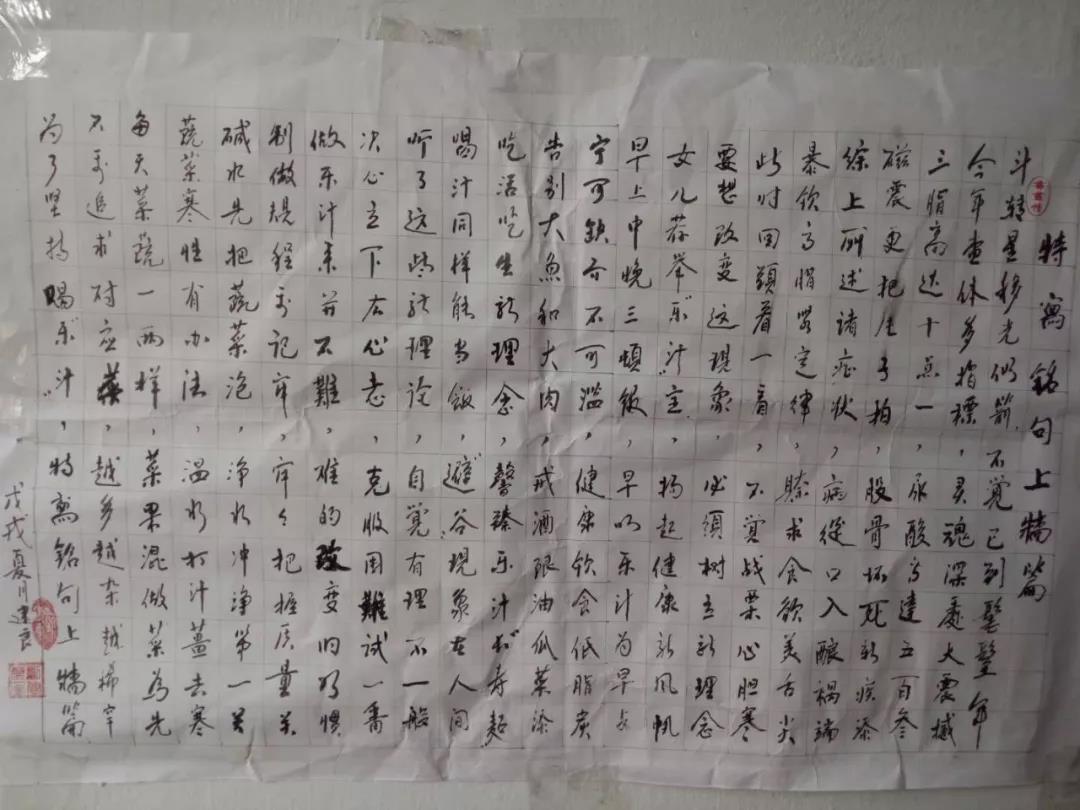 特寫銘句上墻篇
斗转星移光似箭，不觉已到髦髦年
今年查体多指標，灵魂深處大震撼
三脂高达十点一，尿酸高達五百叁
磁震更把片子拍，股骨坏死新疾添
综上所述诸症状，病從口入釀禍端
暴饮高脂罢定律，賺求食欲美舌尖
此时回頭看一看，不觉战栗心胆寒
要想改变这现象，必須树立新理念
女儿荐举“乐汁”主，扬起健康新风帆
早上中晚三頓飯，早以乐汁为早点
宁可缺而不可滥，健康饮食低脂炭
告别大魚和大肉，戒酒限油瓜菜添
吃活吃生新理念，馨臻乐汁“长寿麵”
喝汁同样能当飯，“避”谷现象在人间
听了这些新理论，自觉有理不一般
决心立下右心志，克服困難试一番
做乐汁来并不難，难的改变旧习惯
制做規程要记牢，牢々把握质量关
碱水先把蔬菜泡，净水冲净第一关
蔬菜寒性有办法，温水打汁薑去寒
每天菜蔬一两样，菜果混做菜为先
不要追求对应菜，越多越杂越稀罕
为了坚持喝“乐汁”，特寫銘句上墻篇
戊戌夏川建良